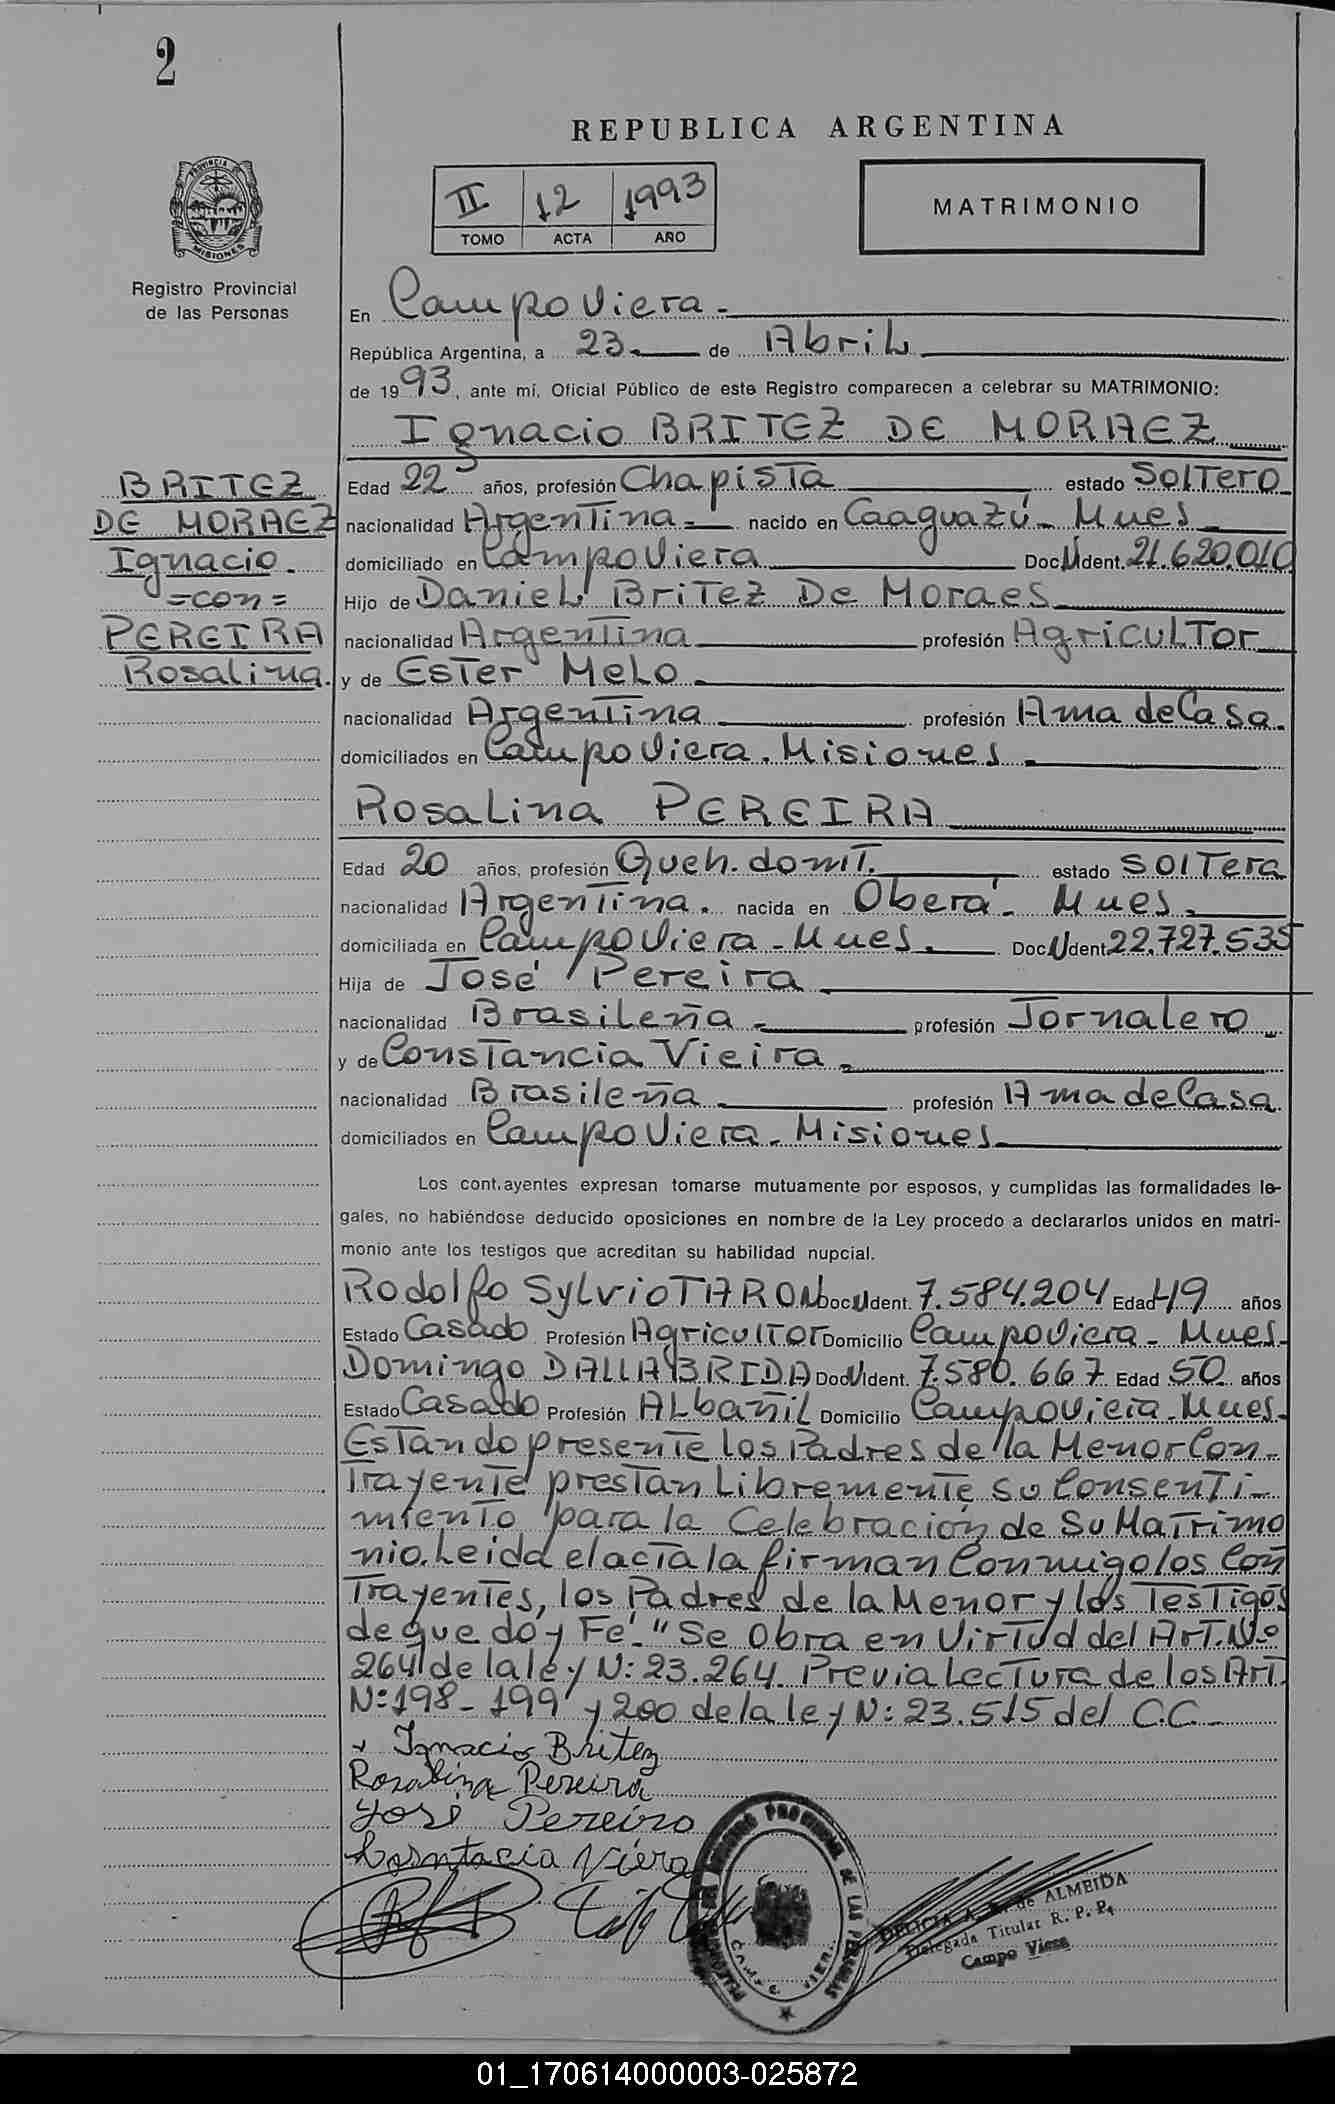 2
REPUBLICA ARGENTINA
PROVINCIA DE
MISIONES
Registro Provincial
de las Personas
II 12 1993
TOMO ACTA AÑO
MATRIMONIO
En Campo Viera.
República Argentina, a 23 de Abril
de 1993, ante mí, Oficial Público de este Registro comparecen a celebrar su MATRIMONIO:
Ignacio BRITEZ DE MORAEZ
BRITEZ
DE MORAEZ
Ignacio.
=con=
PEREIRA
Rosalina.
Edad 22 años, profesión Chapista estado Soltero
nacionalidad Argentina.- nacido en Caaguazú - Mnes
domiciliado en Campo Viera Doc U Ident. 21.620.010
Hijo de Daniel Britez De Moraes
nacionalidad Argentina profesión Agricultor
y de Ester Melo
nacionalidad Argentina profesión Ama de Casa.
domiciliados en Campo Viera. Misiones
Rosalina PEREIRA
Edad 20 años, profesión Queh. domt. estado Soltera
nacionalidad Argentina. nacida en Oberá - Mnes.
domiciliada en Campo Viera - Mnes. Doc U Ident 22.727.535
Hija de José Pereira
nacionalidad Brasileña profesión Jornalero
y de Constancia Vieira
nacionalidad Brasileña profesión Ama de Casa
domiciliados en Campo Viera - Misiones
Los cont.ayentes expresan tomarse mutuamente por esposos, y cumplidas las formalidades le-
gales, no habiéndose deducido oposiciones en nombre de la Ley procedo a declararlos unidos en matri-
monio ante los testigos que acreditan su habilidad nupcial.
Rodolfo Sylvio TARON Doc U Ident. 7.584.204 Edad 49 años
Estado Casado Profesión Agricultor Domicilio Campo Viera - Mnes.
Domingo DALLABRIDA Doc U Ident. 7.580.667 Edad 50 años
Estado Casado Profesión Albañil Domicilio Campo Viera - Mnes.
Estando presente los Padres de la Menor Con-
trayente prestan Libremente su Consenti-
miento para la Celebración de Su Matrimo
nio. Leida el acta la firman Conmigo los Con
Trayentes, los Padres de la Menor y los Testigos
de que doy Fé. "Se Obra en Virtud del Art. No
264 de la ley N: 23.264. Previa Lectura de los Art.
N: 198 - 199 y 200 de la ley N: 23.515 del C.C.
Ignacio Britez
Rosalina Pereira
José Pereira
Corntacia Viera
PROVINCIAL DE LAS PERSONAS
CAMPO VIERA
DELICIA A. de ALMEIDA
Delegada Titular R. P. P.
Campo Viera
01_170614000003-025872